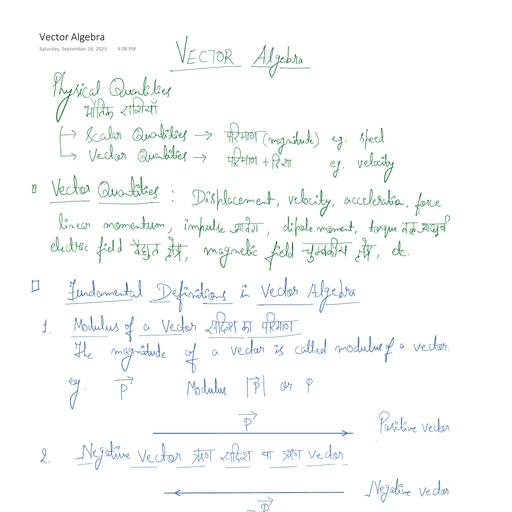 Vector Algebra
Saturday, September 16, 2023 4:08 PM
VECTOR Algebra
Physical Quantities
भौतिक राशियाँ
→ Scalar Quantities → परिमाण (magnitude) eg. speed
→ Vector Quantities → परिमाण + दिशा eg. velocity
Vector Quantities : Displacement, velocity, acceleration, force
linear momentum, impulse आवेग, dipole moment, torque बल आघूर्ण
electric field वैद्युत क्षेत्र, magnetic field चुम्बकीय क्षेत्र, etc.
Fundamental Definitions in Vector Algebra
1. Modulus of a Vector सदिश का परिमाण
The magnitude of a vector is called modulus of a vector.
eg. P⃗ Modulus |P⃗| or P
P⃗ Positive vector
2. Negative Vector ऋण सदिश या ऋण vector
-P⃗ Negative vector